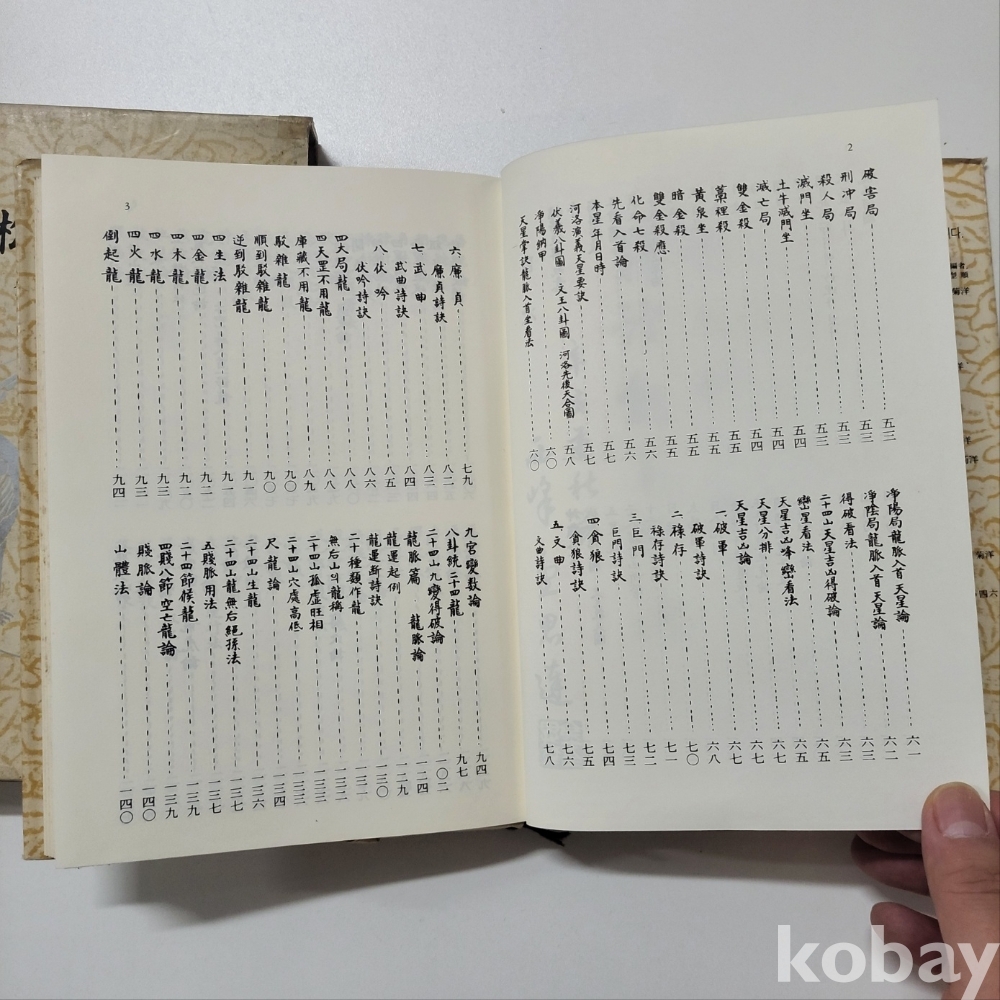 2
破害局 五三
刑冲局 五三
殺人局 五三
滅門坐 五四
土牛滅門坐 五四
滅亡局 五四
雙金殺 五五
藁裡殺 五五
黃泉坐 五五
暗金殺 五五
雙金殺應 五六
化命七殺 五六
先看入首論 五六
本星年月日時 五七
河洛演義天星要訣 五八
伏羲八卦圖 文王八卦圖 河洛先後天合圖
淨陽納甲 六〇
天星掌訣龍脈入首坐看法 六〇
淨陽局龍脈入首天星論 六一
淨陰局龍脈入首天星論 六三
得破看法 六三
二十四山天星吉凶得破論 六五
巒星看法 六五
天星吉凶峰巒看法 六六
天星分排 六七
天星吉凶論 六七
一破軍 六八
破軍詩訣 七〇
二祿存 七一
祿存詩訣 七二
三巨門 七三
巨門詩訣 七四
四貪狼 七五
貪狼詩訣 七七
五文曲 七八
文曲詩訣 七八
3
六廉貞 七九
廉貞詩訣 八二
七武曲 八三
武曲詩訣 八四
八伏吟 八五
伏吟詩訣 八六
四大局龍 八八
四天罡不用龍 八八
庫藏不用龍 八九
駁雜龍 九〇
順到駁雜龍 九〇
逆到駁雜龍 九一
四生法 九一
四金龍 九二
四木龍 九二
四水龍 九三
四火龍 九三
倒起龍 九四
九宮變数論 九四
八卦統二十四龍 九七
二十四山九變得破論 一〇二
龍脈篇 龍脈論 一二四
龍運起例 一二九
龍運断詩訣 一三〇
二十種類作龍 一三二
無后山의龍稱 一三二
二十四山孤虛旺相 一三三
二十四山穴處高低 一三三
尺龍論 一三四
二十四山生龍 一三六
二十四山龍無后絕孫法 一三七
五賤脈用法 一三七
二十四節候龍 一三九
四賤八節空亡龍論 一三九
賤脈論 一四〇
山體法 一四〇
kobay